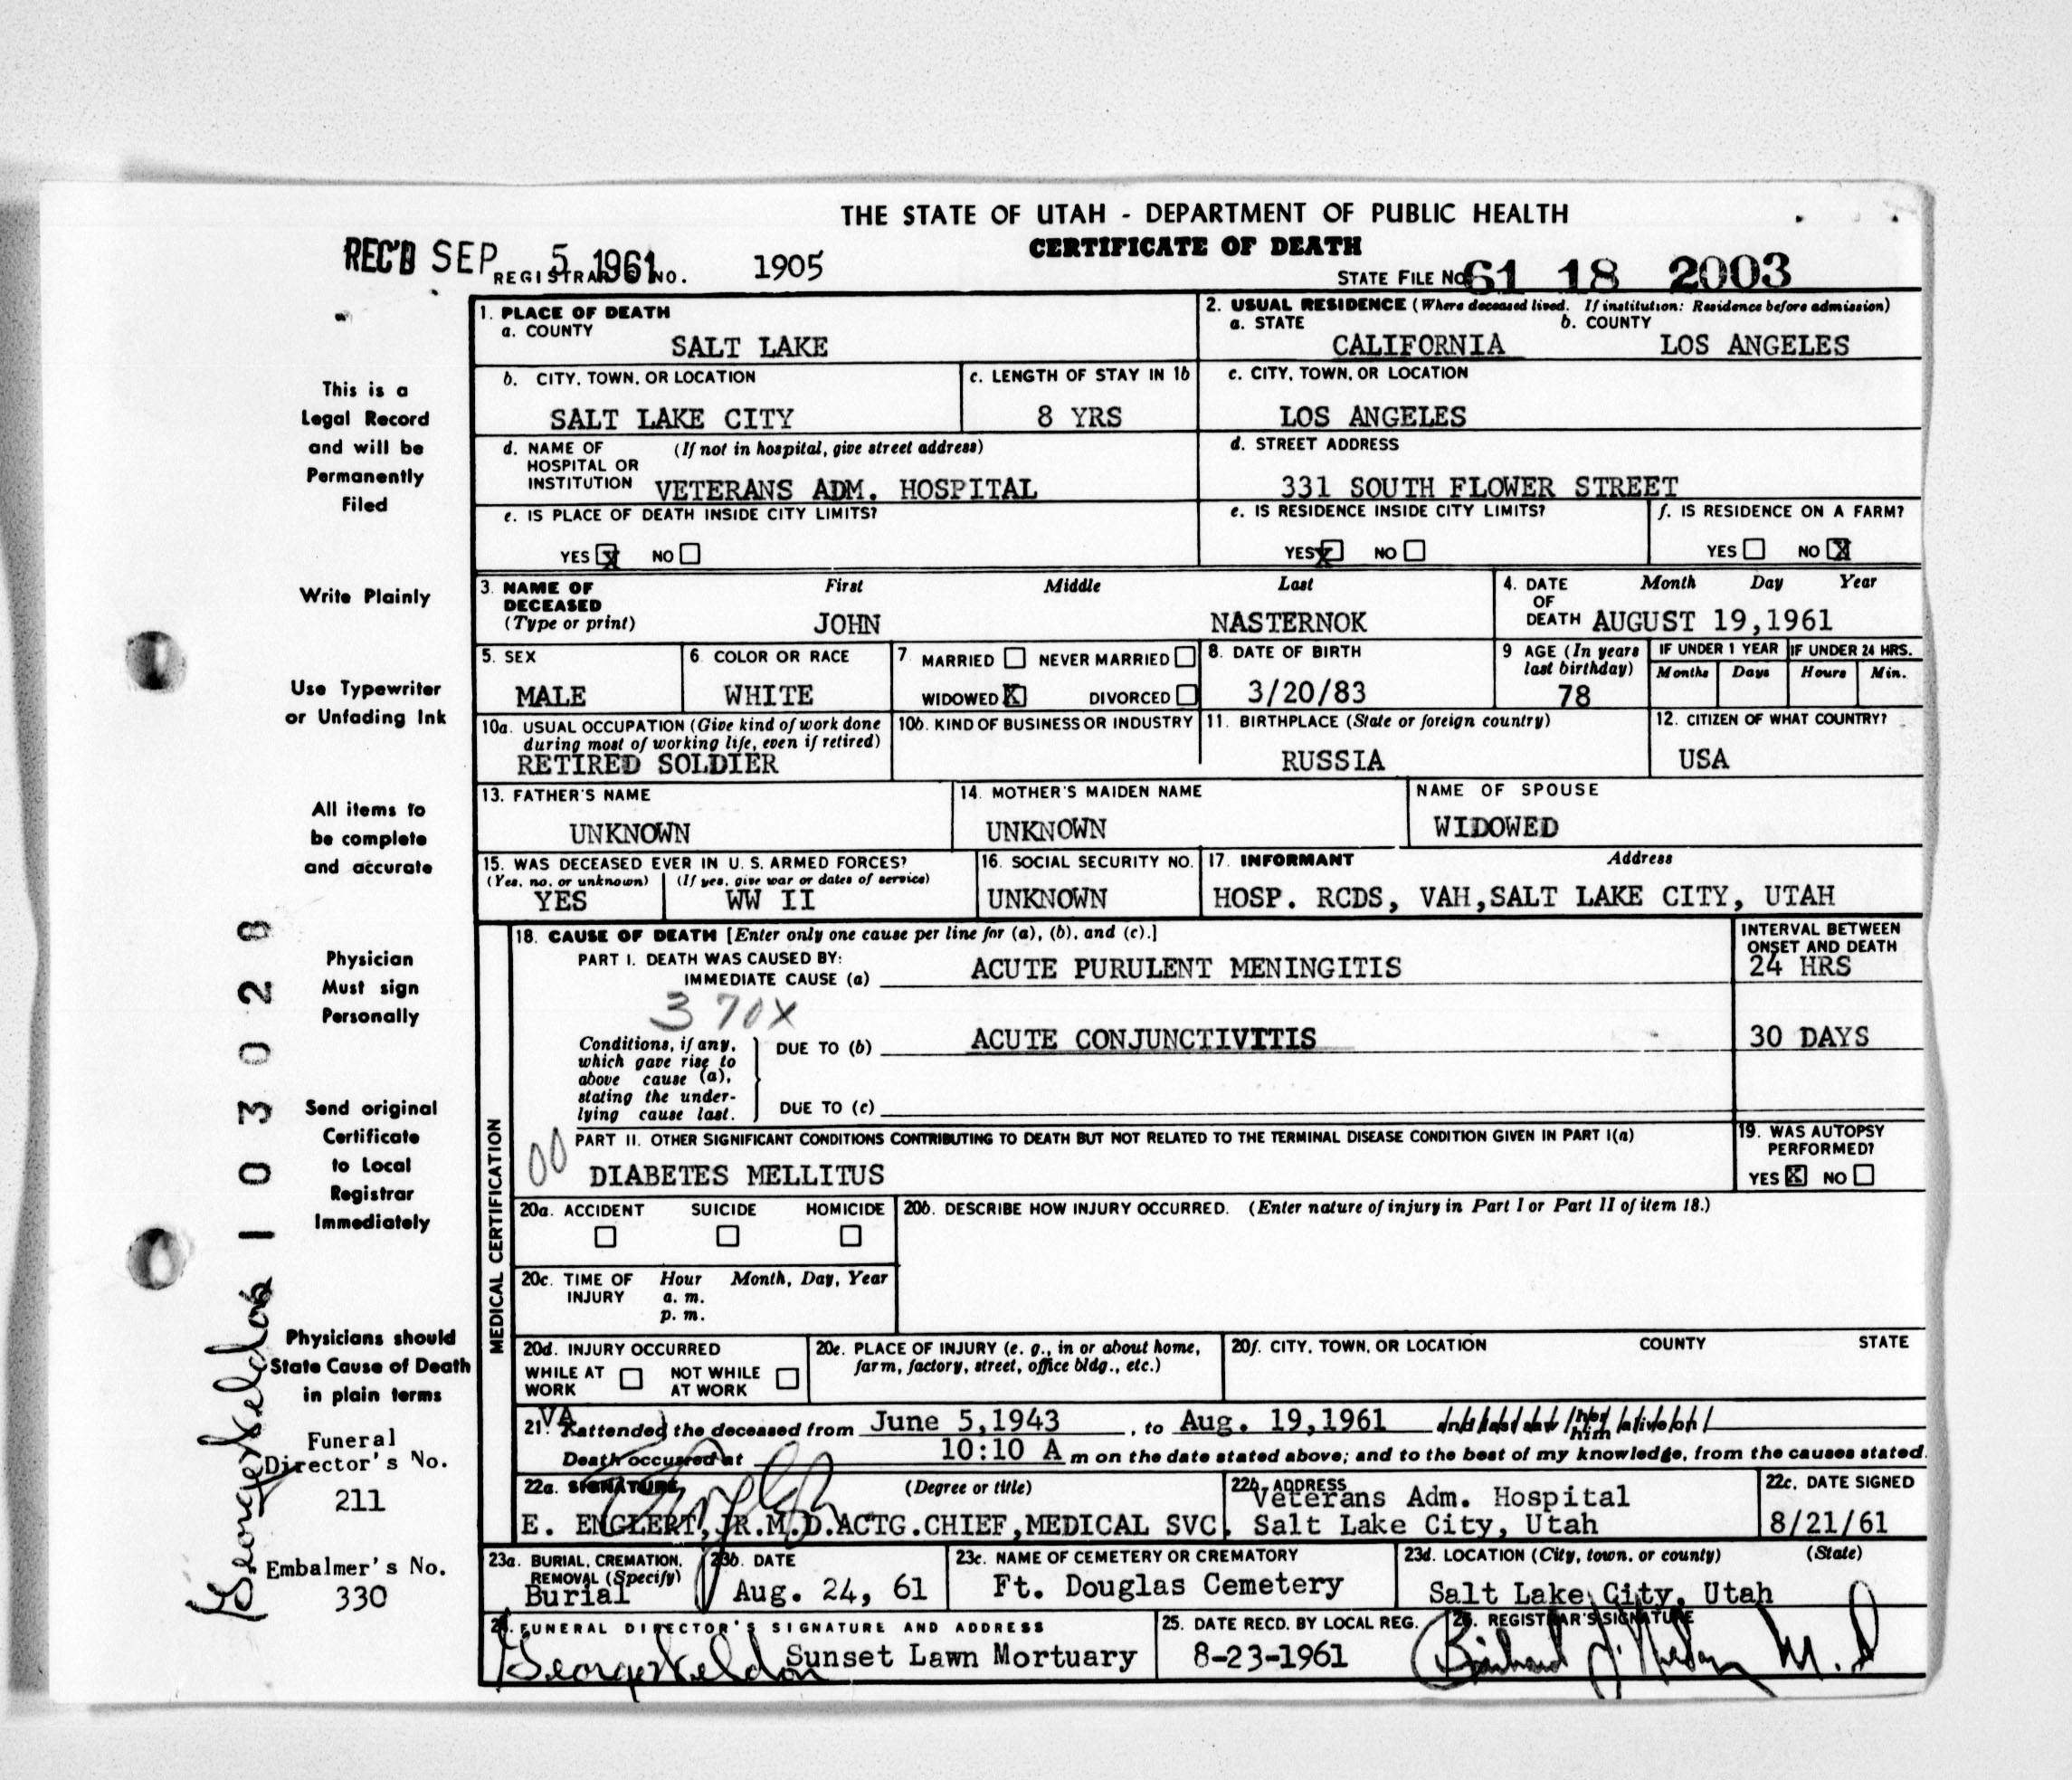 THE STATE OF UTAH - DEPARTMENT OF PUBLIC HEALTH
CERTIFICATE OF DEATH
REC'D SEP 5 1961
REGISTRAR'S NO. 1905
STATE FILE NO. 61 18 2003
1. PLACE OF DEATH
a. COUNTY
SALT LAKE
2. USUAL RESIDENCE (Where deceased lived. If institution: Residence before admission)
a. STATE b. COUNTY
CALIFORNIA LOS ANGELES
b. CITY, TOWN, OR LOCATION
SALT LAKE CITY
c. LENGTH OF STAY IN 1b
8 YRS
c. CITY, TOWN, OR LOCATION
LOS ANGELES
d. NAME OF (If not in hospital, give street address)
HOSPITAL OR
INSTITUTION VETERANS ADM. HOSPITAL
d. STREET ADDRESS
331 SOUTH FLOWER STREET
e. IS PLACE OF DEATH INSIDE CITY LIMITS?
YES X NO
e. IS RESIDENCE INSIDE CITY LIMITS?
YES X NO
f. IS RESIDENCE ON A FARM?
YES NO X
3. NAME OF First Middle Last
DECEASED
(Type or print) JOHN NASTERNOK
4. DATE Month Day Year
OF
DEATH AUGUST 19,1961
5. SEX
MALE
6. COLOR OR RACE
WHITE
7. MARRIED NEVER MARRIED
WIDOWED X DIVORCED
8. DATE OF BIRTH
3/20/83
9 AGE (In years
last birthday)
78
IF UNDER 1 YEAR
Months Days
IF UNDER 24 HRS.
Hours Min.
10a. USUAL OCCUPATION (Give kind of work done
during most of working life, even if retired)
RETIRED SOLDIER
10b. KIND OF BUSINESS OR INDUSTRY
11. BIRTHPLACE (State or foreign country)
RUSSIA
12. CITIZEN OF WHAT COUNTRY?
USA
13. FATHER'S NAME
UNKNOWN
14. MOTHER'S MAIDEN NAME
UNKNOWN
NAME OF SPOUSE
WIDOWED
15. WAS DECEASED EVER IN U. S. ARMED FORCES?
(Yes, no, or unknown) (If yes, give war or dates of service)
YES WW II
16. SOCIAL SECURITY NO.
UNKNOWN
17. INFORMANT Address
HOSP. RCDS, VAH,SALT LAKE CITY, UTAH
MEDICAL CERTIFICATION
18. CAUSE OF DEATH [Enter only one cause per line for (a), (b), and (c).]
PART I. DEATH WAS CAUSED BY:
IMMEDIATE CAUSE (a) ACUTE PURULENT MENINGITIS
INTERVAL BETWEEN
ONSET AND DEATH
24 HRS
370X
Conditions, if any,
which gave rise to
above cause (a),
stating the under-
lying cause last.
DUE TO (b) ACUTE CONJUNCTIVITIS
30 DAYS
DUE TO (c)
00
PART II. OTHER SIGNIFICANT CONDITIONS CONTRIBUTING TO DEATH BUT NOT RELATED TO THE TERMINAL DISEASE CONDITION GIVEN IN PART I(a)
DIABETES MELLITUS
19. WAS AUTOPSY
PERFORMED?
YES X NO
20a. ACCIDENT SUICIDE HOMICIDE
20b. DESCRIBE HOW INJURY OCCURRED. (Enter nature of injury in Part I or Part II of item 18.)
20c. TIME OF Hour Month, Day, Year
INJURY a. m.
p. m.
20d. INJURY OCCURRED
WHILE AT NOT WHILE
WORK AT WORK
20e. PLACE OF INJURY (e. g., in or about home,
farm, factory, street, office bldg., etc.)
20f. CITY, TOWN, OR LOCATION COUNTY STATE
21. VA attended the deceased from June 5,1943, to Aug. 19,1961 and last saw her him alive on
Death occurred at 10:10 A m on the date stated above; and to the best of my knowledge, from the causes stated.
22a. SIGNATURE (Degree or title)
E. ENGLERT,JR.M.D.ACTG.CHIEF,MEDICAL SVC.
22b. ADDRESS
Veterans Adm. Hospital
Salt Lake City, Utah
22c. DATE SIGNED
8/21/61
23a. BURIAL, CREMATION,
REMOVAL (Specify)
Burial
23b. DATE
Aug. 24, 61
23c. NAME OF CEMETERY OR CREMATORY
Ft. Douglas Cemetery
23d. LOCATION (City, town, or county) (State)
Salt Lake City, Utah
24. FUNERAL DIRECTOR'S SIGNATURE AND ADDRESS
Sunset Lawn Mortuary
25. DATE RECD. BY LOCAL REG.
8-23-1961
26. REGISTRAR'S SIGNATURE
M.D
This is a
Legal Record
and will be
Permanently
Filed
Write Plainly
Use Typewriter
or Unfading Ink
All items to
be complete
and accurate
Physician
Must sign
Personally
Send original
Certificate
to Local
Registrar
Immediately
Physicians should
State Cause of Death
in plain terms
Funeral
Director's No.
211
Embalmer's No.
330
103028